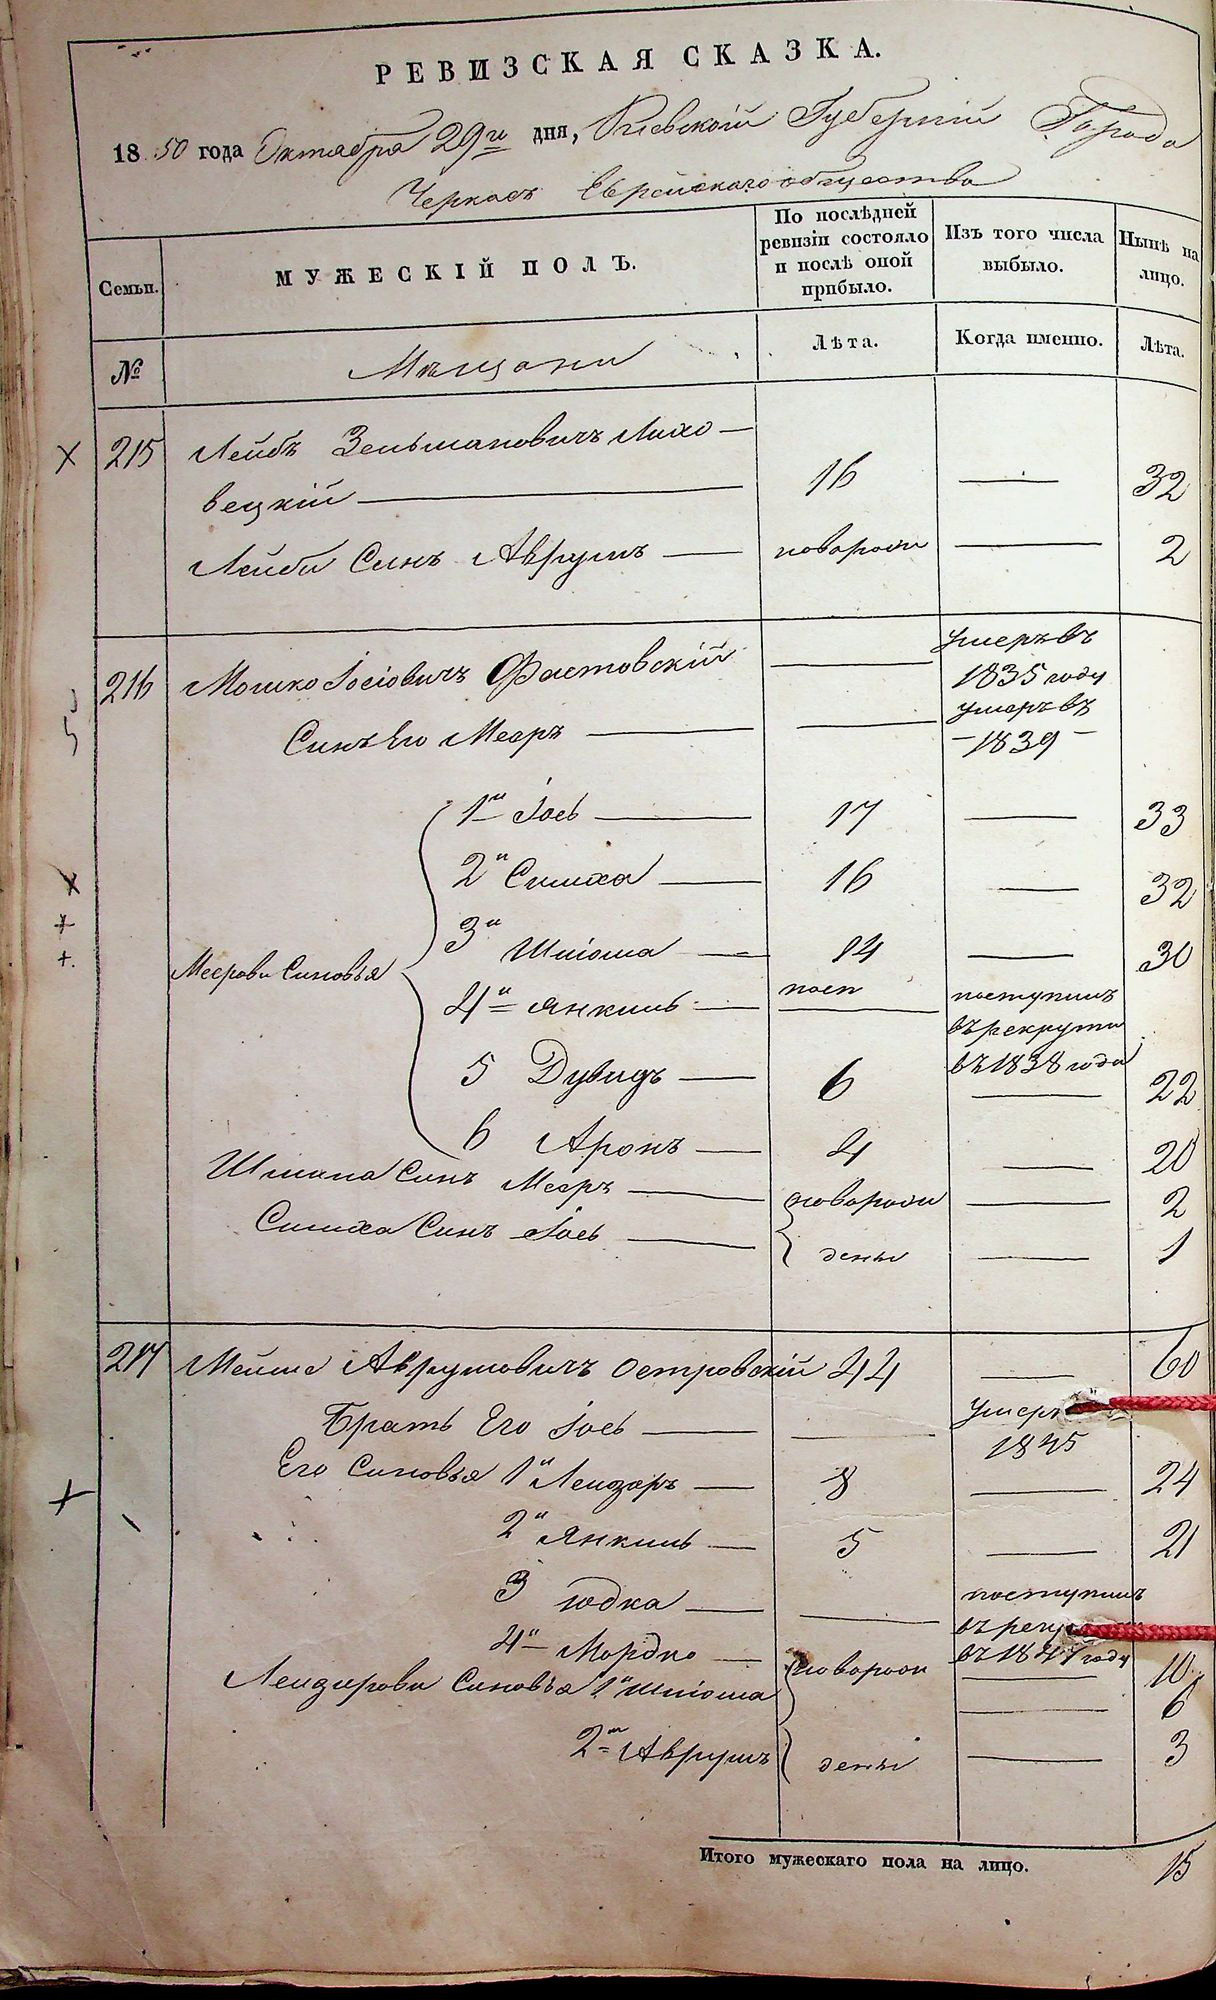 РЕВИЗСКАЯ СКАЗКА.
1850 года Октября 29го дня, Киевской Губерніи Города
Черкасъ Еврейскаго общества
Семьи.
МУЖЕСКІЙ ПОЛЪ.
По послѣдней
ревизіи состояло
и послѣ оной
прибыло.
Изъ того числа
выбыло.
Нынѣ на
лицо.
№
Мещани
Лѣта.
Когда именно.
Лѣта.
215 Лейбъ Зельмановичъ Лихо-
вецкій — 16 — 32
Лейби Синъ Аврумъ — новорожи — 2
216 Мошко Іосіовичъ Фастовскій — умеръ въ
1835 году
Синъ Его Мееръ — умеръ въ
-1839-
1й Іось — 17 — 33
2й Симха — 16 — 32
3й Шліома — 14 — 30
Меерови Синовья
4й Янкиль — посл — поступилъ
въ рекруты
въ 1838 года
5 Дувидъ — 6 — 22
6 Аронъ — 4 — 20
Шліома Синъ Мееръ — новорожи — 2
Симха Синъ Іось — дены — 1
217 Мейше Аврумовичъ Островскій 44 — 60
Братъ Его Іось — умеръ
1845
Его Синовья 1й Лейзеръ — 8 — 24
2й Янкиль — 5 — 21
3 Юдка — поступилъ
4й Мордко — новорожи въ 1847 году 10
Лейзерови Синовья 1й Шліома — 6
2й Аврумъ дены — 3
Итого мужескаго пола на лицо. 15